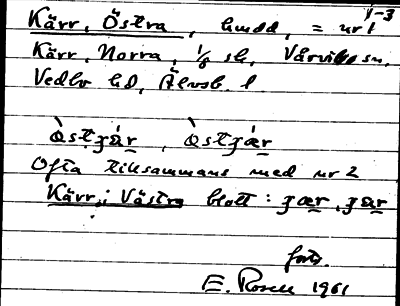 1-3
Kärr, Östra, hmdd, = nr 1
Kärr, Norra, 1/8 sk, Vårviks sn,
Vedbo hd, Älvsb. l
Òstʒä́r, Òstʒǽr
Ofta tillsammans med nr 2
Kärr, Västra blott: ʒær, ʒär
forts.
E. Rosell 1961